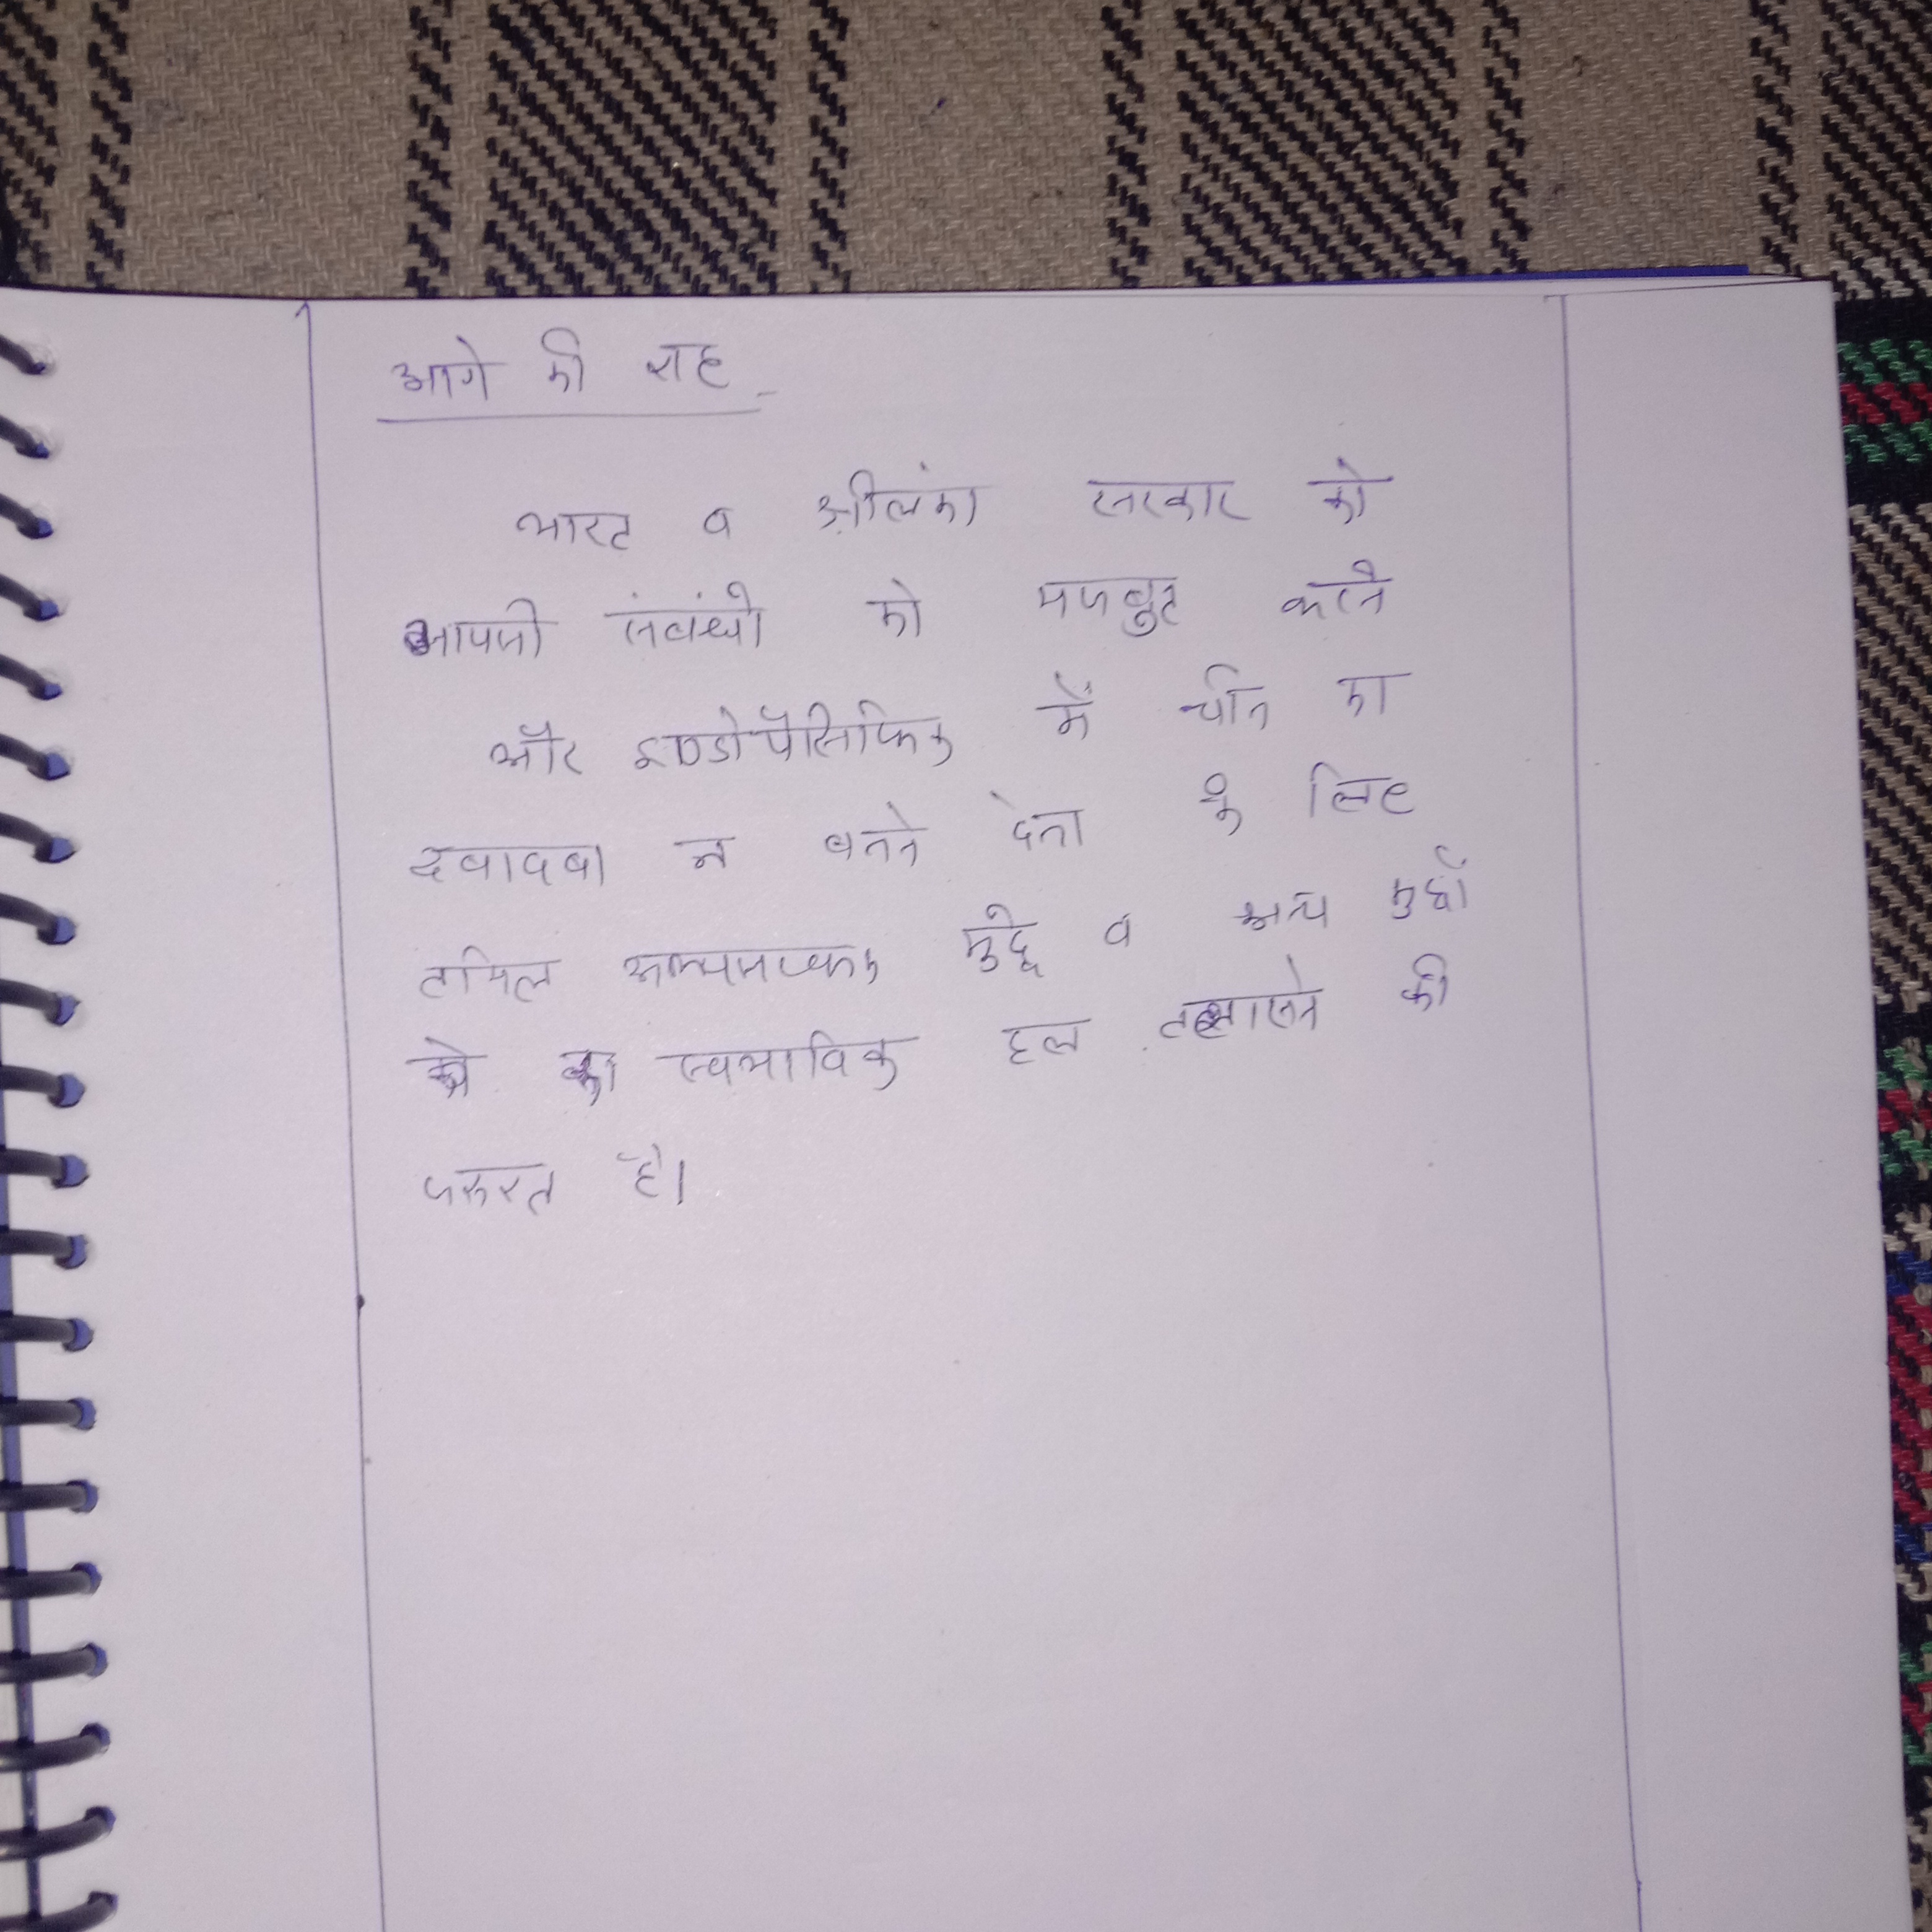 आगे की राह
भारत व श्रीलंका सरकार को
आपसी संबंधो को मजबुत करने
और इण्डोपैसिफिक में चीन का
दबादबा न बनने देना के लिए
तमिल अल्पसंख्यक मुद्दे व अन्य मुद्दों
का स्वभाविक हल तलाशने की
जरुरत है।